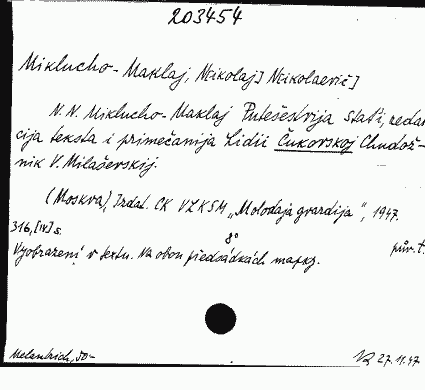 203454
Miklucho-Maklaj, N[ikolaj] N[ikolaevič]
N. N. Miklucho-Maklaj Putešestvija stat'i, redak
cija teksta i primečanija Lidii Čukovskoj Chudož-
nik V. Milaševskij.
(Moskva), Izdat. CK VLKSM „Molodaja gvardija", 1947.
316, [IV] s. 8°
Vyobrazení v textu. Na obou předsádkách mapky. pův. t.
Melantrich, 50-
27.11.47